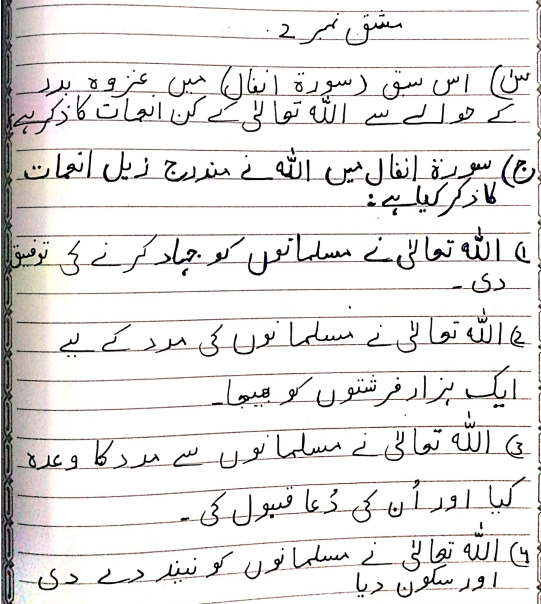 مشق نمبر 2
س) اس سبق (سورۃ انفال) میں غزوہ بدر
کے حوالے سے اللہ تعالیٰ کے کن انعمات کا ذکر ہے؟
ج) سورۃ انفال میں اللہ نے مندرج زیل انعمات
کا ذکر کیا ہے:
1) اللہ تعالیٰ نے مسلمانوں کو جہاد کرنے کی توفیق
دی۔
2) اللہ تعالیٰ نے مسلمانوں کی مدد کے لیے
ایک ہزار فرشتوں کو بیجا۔
3) اللہ تعالیٰ نے مسلمانوں سے مدد کا وعدہ
کیا اور اُن کی دُعا قبول کی۔
4) اللہ تعالیٰ نے مسلمانوں کو نیند دے دی
اور سکون دیا